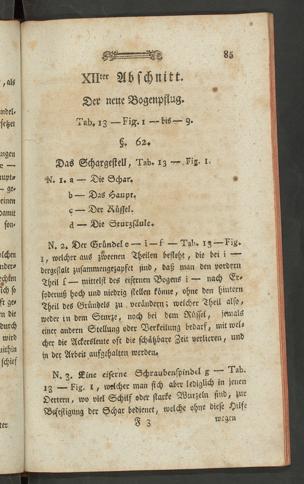 85
XIIter Abschnitt.
Der neue Bogenpflug.
Tab. 13 — Fig. 1 — bis — 9.
§. 62.
Das Schargestell, Tab. 13 — Fig. 1.
N. 1. a — Die Schar.
b — Das Haupt.
c — Der Rüssel.
d — Die Sturzsäule.
N. 2. Der Gründel e — i — f — Tab. 13 — Fig.
1, welcher aus zweenen Theilen besteht, die bei i —
dergestalt zusammengezapfet sind, daß man den vordern
Theil f — mittelst des eisernen Bogens i — nach Er-
forderniß hoch und niedrig stellen könne, ohne den hintern
Theil des Gründels zu verändern; welcher Theil also,
weder in dem Sturze, noch bei dem Rüssel, jemals
einer andern Stellung oder Verkeilung bedarf, mit wel-
cher die Ackersleute oft die schätzbare Zeit verlieren, und
in der Arbeit aufgehalten werden.
N. 3. Eine eiserne Schraubenspindel g — Tab.
13 — Fig. 1, welcher man sich aber lediglich in jenen
Oertern, wo viel Schilf oder starke Wurzeln sind, zur
Befestigung der Schar bedienet, welche ohne diese Hilfe
F 3 wegen